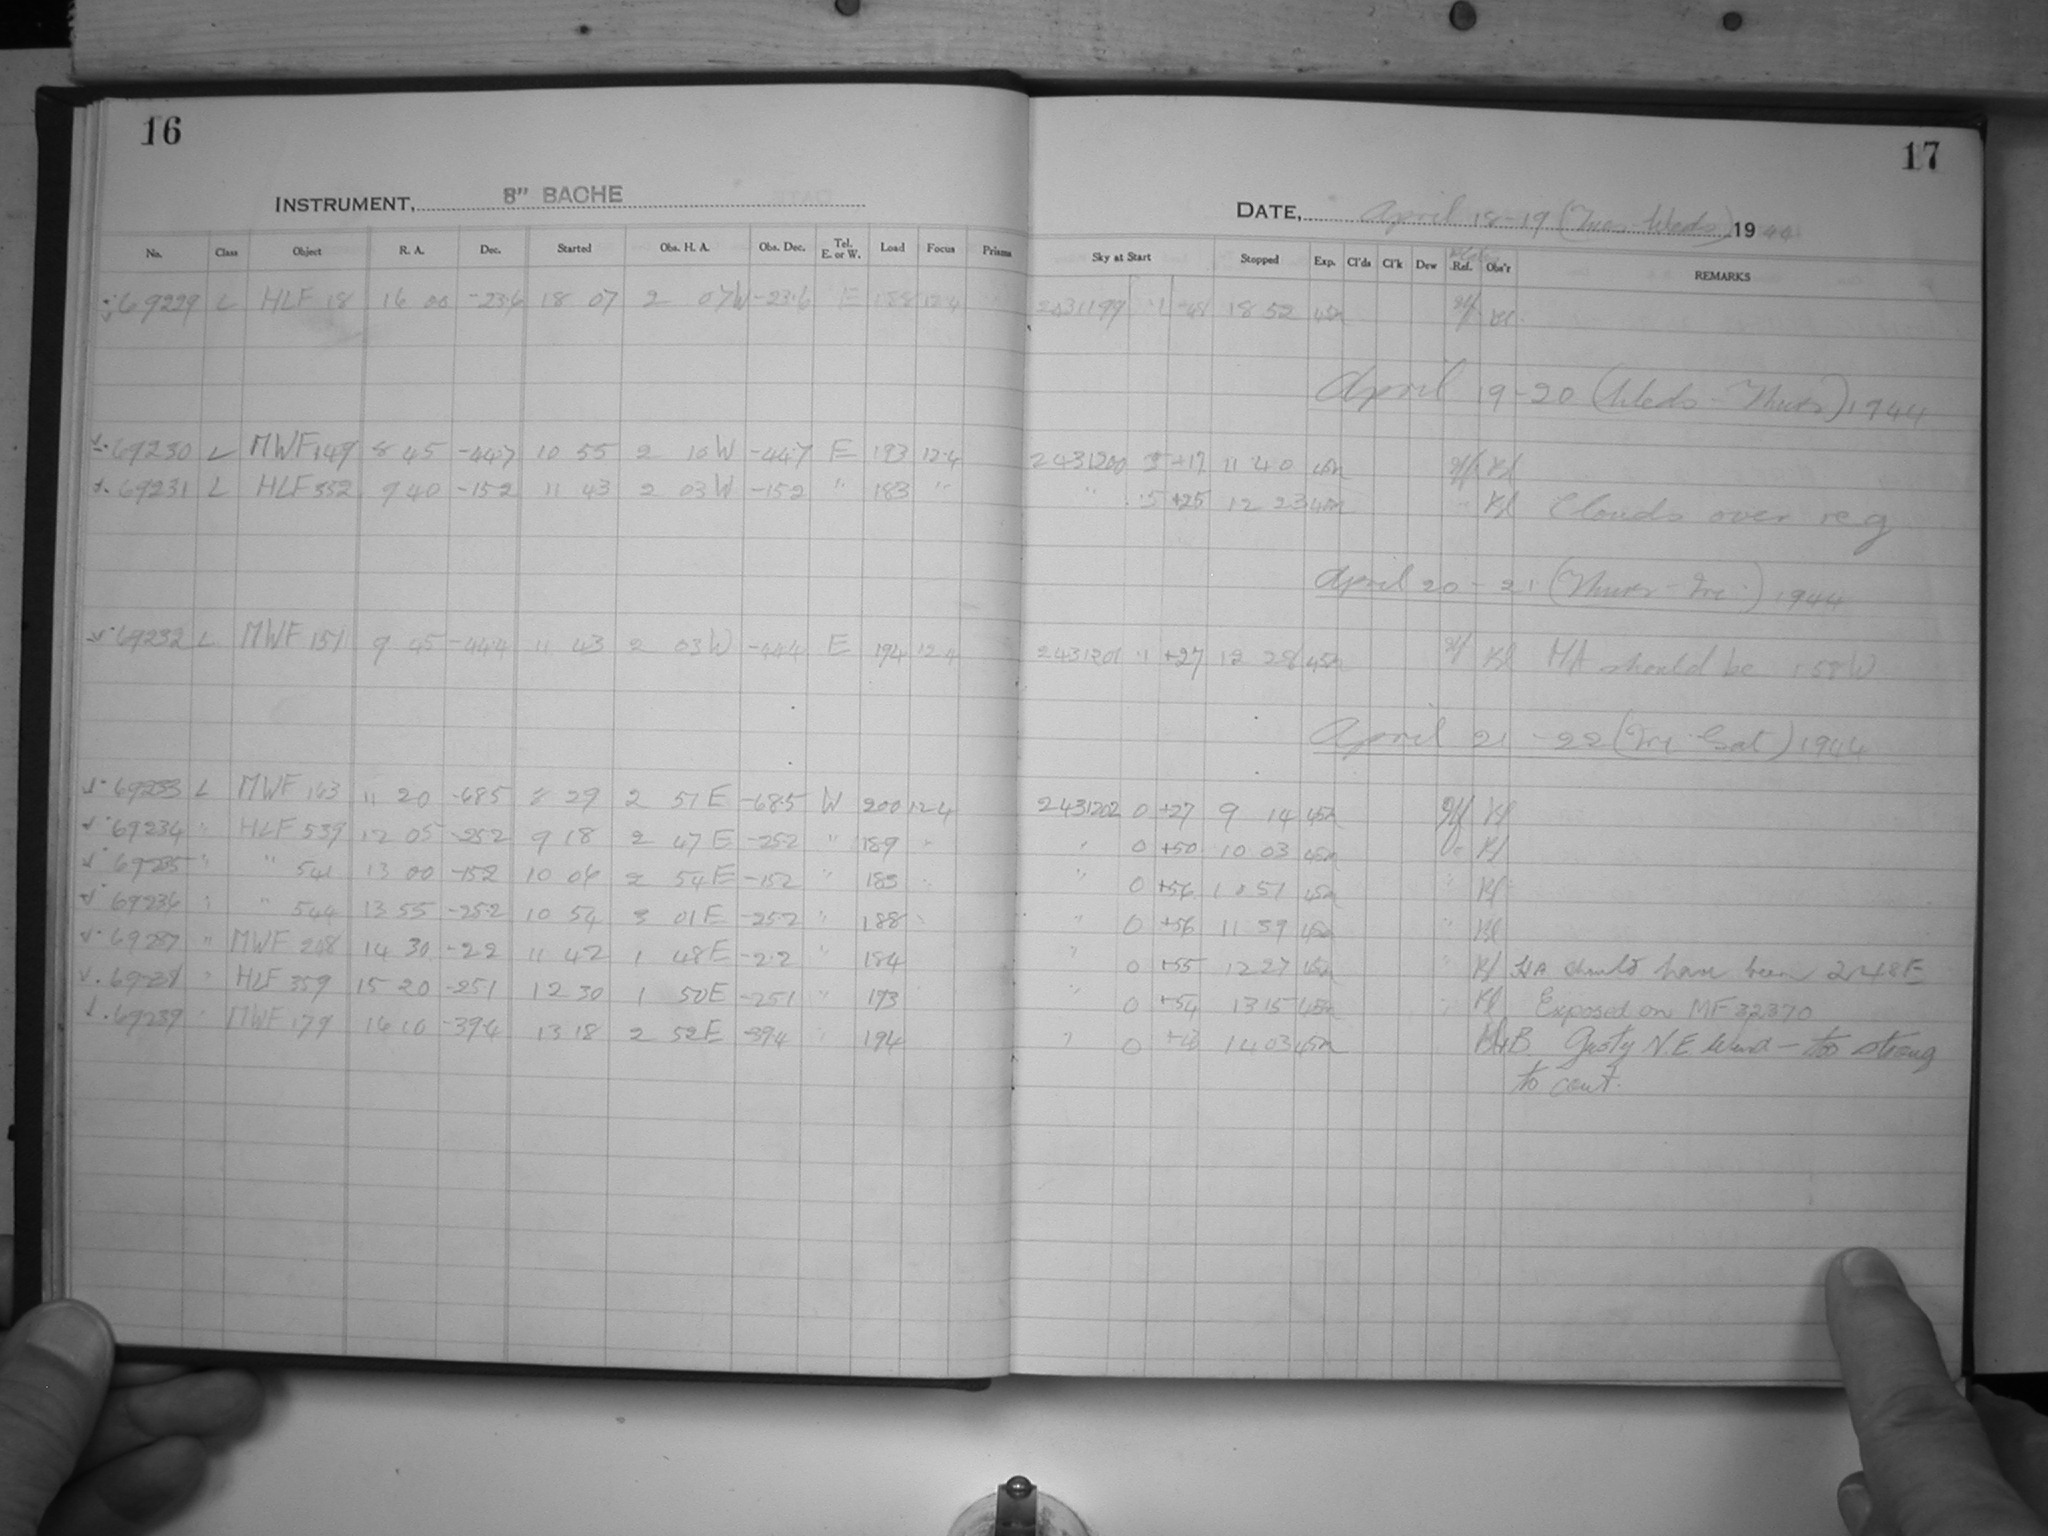 16
INSTRUMENT, 8" BACHE
No. Class Object R. A. Dec. Started Obs. H. A. Obs. Dec. Tel. E. or W. Load Focus Prisms
69229 L HLF 18 16 00 -23.6 18 07 2 07W -23.6 E 188 12.4
69230 L MWF 149 8 45 -44.7 10 55 2 10W -44.7 E 193 12.4
69231 L HLF 352 9 40 -15.2 11 43 2 03W -15.2 " 183 "
69232 L MWF 151 9 45 -44.4 11 43 2 03W -44.4 E 194 12.4
69233 L MWF 163 11 20 -68.5 8 29 2 51E -68.5 W 200 12.4
69234 " HLF 539 12 05 -25.2 9 18 2 47E -25.2 " 189 "
69235 " " 541 13 00 -15.2 10 06 2 54E -15.2 " 183 "
69236 " " 544 13 55 -25.2 10 54 3 01E -25.2 " 188 "
69237 " MWF 208 14 30 -2.2 11 42 1 48E -2.2 " 184
69238 " HLF 359 15 20 -25.1 12 30 1 50E -25.1 " 193
69239 " MWF 179 16 10 -39.4 13 18 2 52E -39.4 " 194
17
DATE, April 18-19 (Tues-Weds) 1944
Sky at Start Stopped Exp. Cl'ds Cl'k Dew Ref. Obs'r REMARKS
2431199 .1 18 52 45m
April 19-20 (Weds-Thurs) 1944
2431200 +17 11 40 45m
" .5 +25 12 23 45m " Clouds over reg
April 20-21 (Thurs-Fri) 1944
2431201 .1 +27 12 28 45m HA should be 1 58W
April 21-22 (Fri-Sat) 1944
2431202 0 +27 9 14 45m
" 0 +50 10 03 45m
" 0 +56 10 51 45m "
" 0 +56 11 59 45m "
" 0 +55 12 27 45m " HA should have been 2 48E
" 0 +54 13 15 45m Exposed on MF 32370
" 0 14 03 45m Gusty N.E wind - too strong
to cont.